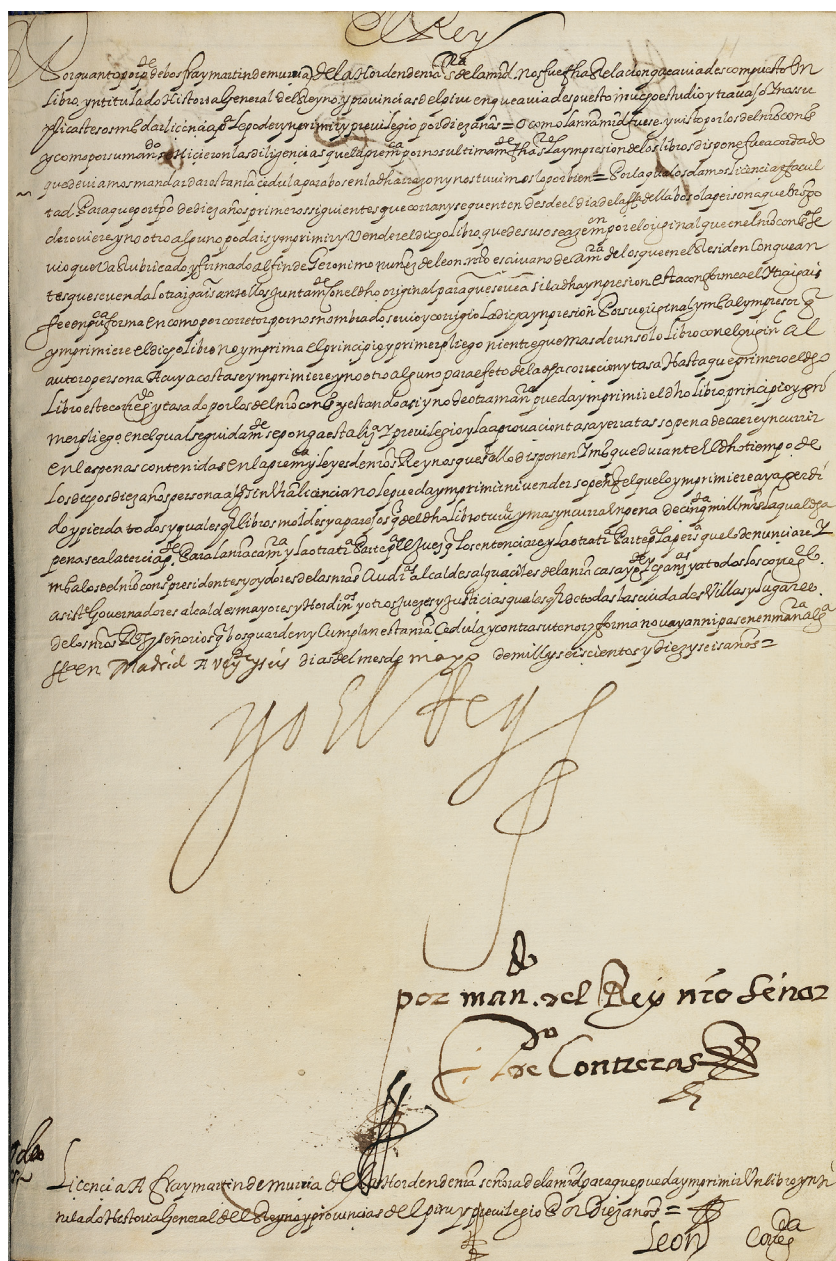 El Rey
Por quanto por pte de bos fray martin de murua de la Horden de nra sa de la mrd. nos fue fha Relacion que aviades compuesto Un
Libro yntitulado Historia General del Reyno y provincias del piru en que aviades puesto mucho estudio y travajo Y nos su
plicastes os mandar licencia pa Le poder ynprimir y previlegio por diez anos = o como la nra mrd fuese. y visto por los del nro consº
y como por su mando se Hicieron las diligencias que la prema por nos ultimamte fha sre La ympresion de los libros dispone fue acordado
que deviamos mandar dar esta nra cedula para bos en la dha razon y nos tuvimos lo por bien = Por la qual os damos licencia y facul
tad Para que por tpo de diez años primeros siguientes que corran y se quenten desde el dia de la fha della bos o la persona que bro po
der oviere y no otro alguno podais ynprimir y Vender el dicho libro que de suso se aze mencon por el original que en el nro consº se
vio que Va Rubricado y firmado al fin de Geronimo nuñez de leon nro escivano de camra de los que en el Residen Con que an
tes que se venda Lo traigais ante ellos Juntamte con el dho original para que se vea si la dha ynpresion esta conforme a el Y traigais
fee en puca forma En como por corretor por nos nombrado se vio y corigio La dicha ynpresion Por su original y mda al ympresor q
ymprimiere el dicho libro no ymprima El principio y primer pliego ni entregue mas de un solo Libro con el original Al
autor o persona A cuya costa se ymprimiere y no otro alguno para efeto de la dha correcion y tasa Hasta que primero el dho
Libro este coregido y tasado por los del nro consº y estando asi y no de otra manera pueda ymprimir el dho libro principio y pri
mer pliego en el qual seguidamte se ponga esta licª Y previlegio y la aprovacion tasa y erratas so pena de caer e yncurrir
en las penas contenidas En la prema y leyes de nros Reynos que sre ello disponen Y mdo que durante El dho tiempo de
Los dichos diez años persona alga sin Vra licencia no le pueda ymprimir ni vender so pena q el que lo ymprimiere aya perdi
do y pierda todos y qualesqr libros moldes y aparejos q del dho libro tuvie y mas yncurra En pena de cinqta mill mrs la qual dha
pena sea la tercia pte Para la nra camra y la otra tra Parte pa el Juez q lo sentenciare y la otra tra Parte pa la persa que lo denunciare Y
mdo a los del nro consº presidentes y oydores de las nras Audias alcaldes alguaciles de la nra casa y corte y chancas y a todos los coregres
asiste Governadores alcaldes mayores y Hordinos y otros Juezes y Justicias qualesqr de todas las ciudades Villas y lugares
de los nros Reys y señorios q bos guarden y Cumplan esta nra Cedula y contra su tenor y forma no vayan ni pasen en manera alga
fha en Madrid A veynte y seis dias del mes de mayo de mill y seiscientos y diez y seis años =
yo El Rey
por mando. del Rey nro Señor
Jº de Contreras
Licencia A fray martin de murua de la Horden de nra señora de la mrd para que pueda ymprimir Un libro ynti
tulado Historia General del Reyno y provincias del piru y previlegio Por Diez anos =
Leon